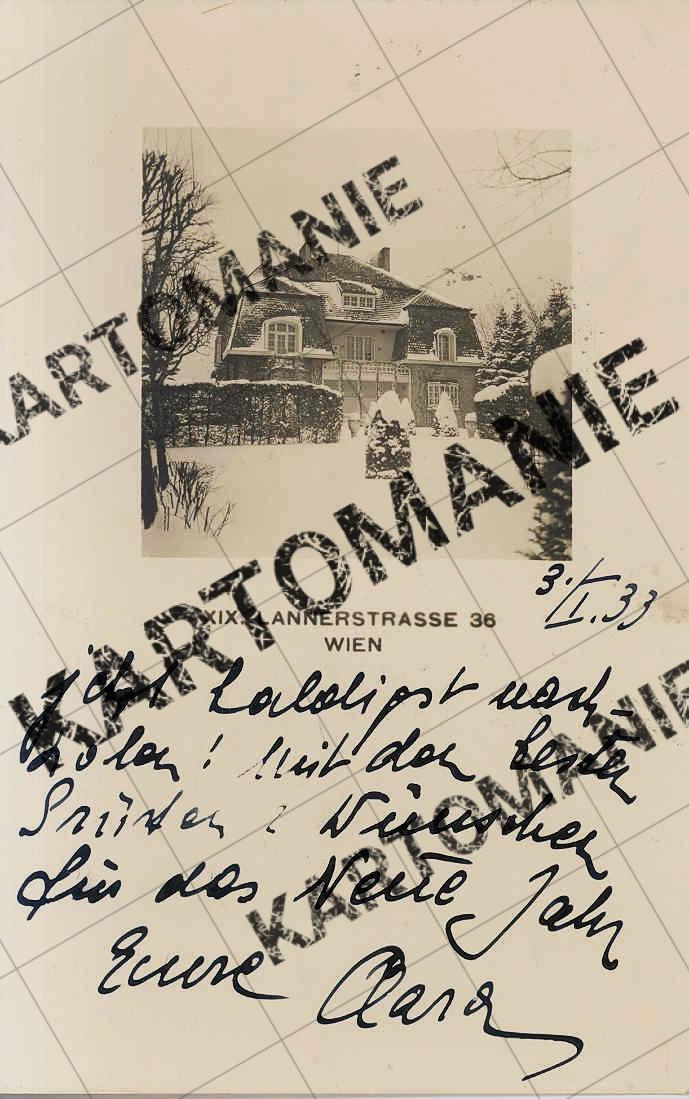 3./I.33
XIX. LANNERSTRASSE 36
WIEN
jetzt baldigst nach-
holen! Mit den besten
Grüßen & Wünschen
für das Neue Jahr
Eure Clara
KARTOMANIE
KARTOMANIE
KARTOMANIE